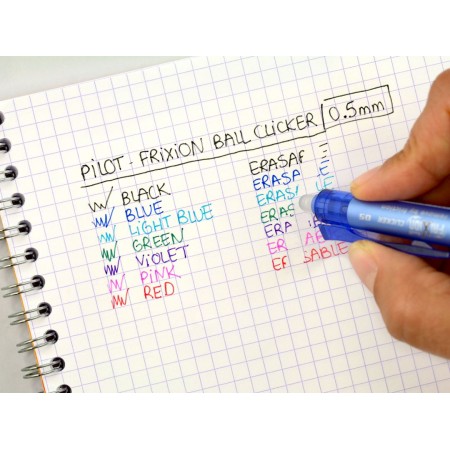 PiLOT - FRIXION BALL CLICKER 0.5mm
BLACK ERASA
BLUE ERASA
LIGHT BLUE ERAS LE
GREEN ERAS
ViOLET ERA
PiNK ER AB
RED ER SABLE